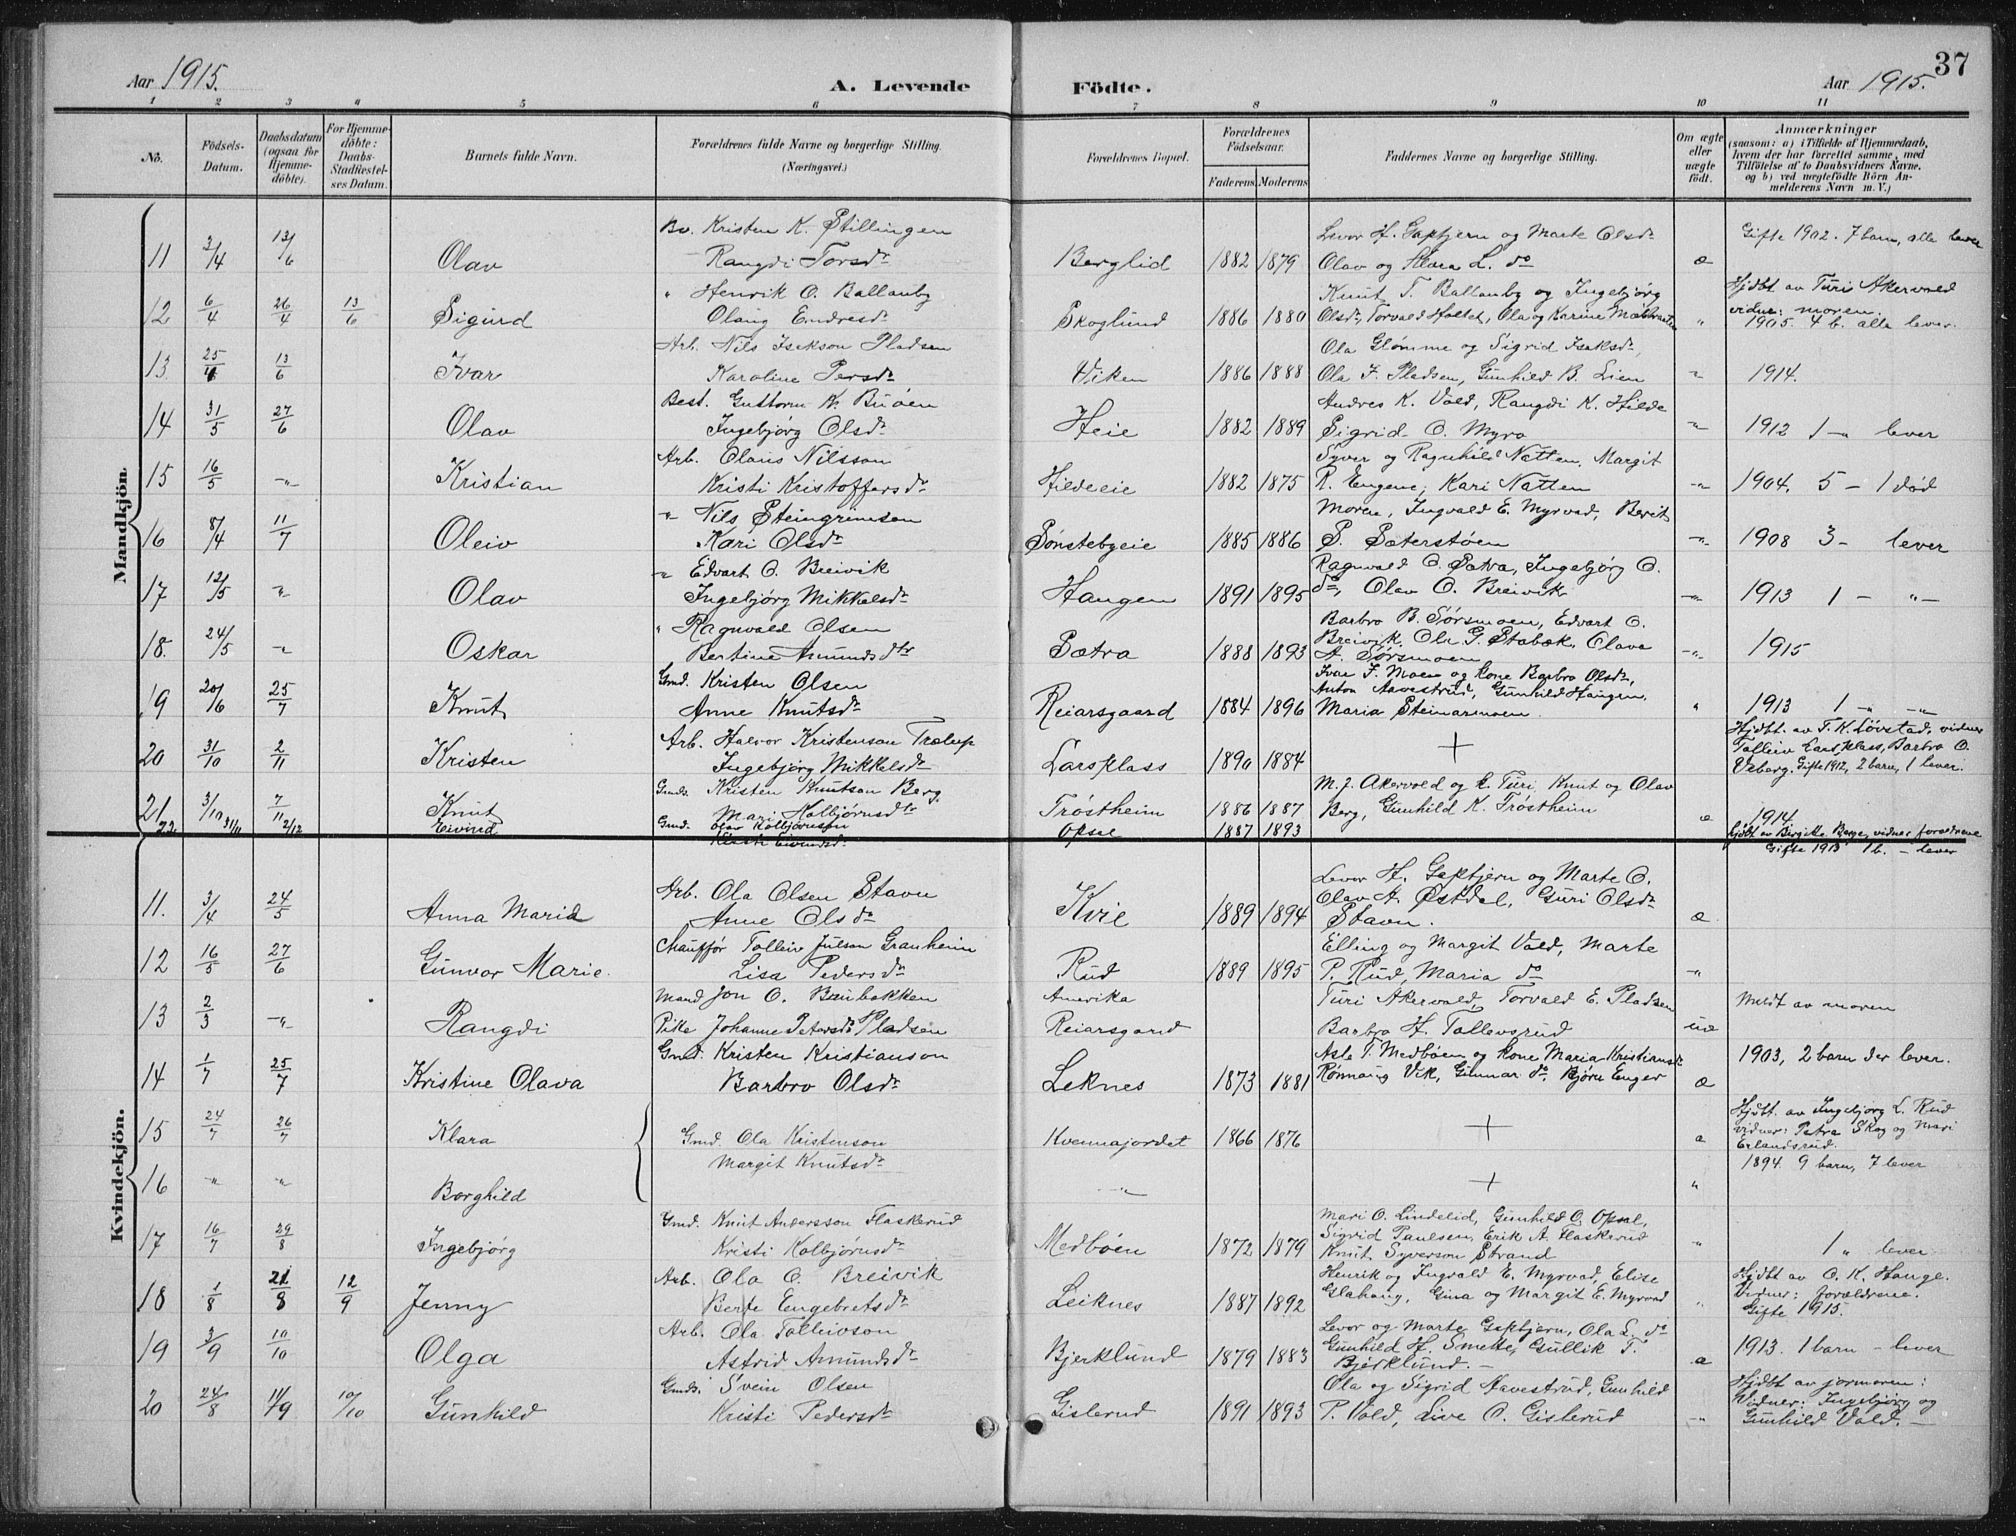 37
Aar 1915.
A. Levende Födte.
Aar 1915.
1 2 3 4 5 6 7 8 9 10 11
No.
Födsels-Datum.
Daabsdatum (ogsaa for Hjemme-döbte).
For Hjemme-döbte: Daabs-Stadfæstel-ses Datum.
Barnets fulde Navn.
Forældrenes fulde Navne og borgerlige Stilling. (Næringsvei.)
Forældrenes Bopæl.
Forældrenes Födselsaar.
Faderens Moderens
Faddernes Navne og borgerlige Stilling.
Om ægte eller uægte födt.
Anmærkninger
(saasom: a) i Tilfælde af Hjemmedaab, hvem der har forrettet samme, med Tilföielse af to Daabsvidners Navne, og b) ved uægtefödte Börn An-melderens Navn m. V.)
Mandkjön.
11 3/4 13/6 Olav
Bv. Kristen K. Stillingen
Rangdi Torsdr
Berglid 1882 1879
Levor H. Gapbjern og Marte Olsdr
Olav og Klara L. do
æ
Gifte 1902. 7 barn, alle lever
12 6/4 26/4 13/6 Sigurd
" Henrik O. Ballanby
Olaug Endresdr
Skoglund 1886 1880
Knut T. Ballanby og Ingebjørg
Olsdr, Torvald Holtet, Ola og Karine
"
Hjdbt av Turi Akervold
vidner: moren.
1905. 4 b. alle lever.
13. 25/4 13/6 Ivar
Arb. Nils Isakson Pladsen
Karoline Persdr
Viken 1886 1888
Ola Glømme og Sigrid Isaksdr,
Ola I. Pladsen, Gunhild B. Lien
"
1914.
14 31/5 27/6 Olav
Best. Guttorm K. Buöen
Ingebjørg Olsdr
Heie 1882 1889
Andres K. Vold, Rangdi K. Hilde
Sigrid O. Myro
"
1912 1 -"- lever
15 16/5 -"- Kristian
Arb. Olaus Nilsson
Kristi Kristoffersdr
Hildeeie 1882 1875
Syver og Ragnhild Natten, Margit
R. Engene, Kari Natten
-"-
1904. 5 - 1 død
16 8/4 11/7 Oleiv
" Nils Steingrimson
Kari Olsdr
Sønstebyeie 1885 1886
Moren, Ingvald E. Myrvad, Berit
S. Sæterstøen
-"-
1908 3 - lever
17 12/5 -"- Olav
" Edvart O. Breivik
Ingebjørg Mikkelsdr
Haugen 1891 1895
Ragnvald O. Sætra, Ingebjørg O.
do, Olav O. Breivik
-"-
1913 1 - -"-
18. 24/5 -"- Oskar
" Ragnvald Olsen
Bertine Amundsdtr
Sætra 1888 1893
Barbro B. Sørsmoen, Edvart O.
Breivik, Ola G. Stabæk, Olava
A. Sørsmoen
-"-
1915
19 20/6 25/7 Knut
Gmd. Kristen Olsen
Anne Knutsdr
Reiarsgaard 1884 1896
Ivar I. Moen og kone Barbro Olsdr,
Anton Aavestrud, Gunhild Haugen,
Maria Steinarmoen.
"
1913 1 -"- -"-
20 31/10 2/11 Kristen
Arb. Halvor Kristenson Trælup
Ingebjørg Mikkelsdr
Larsplass 1890 1884
+
Hjdbt. av T. K. Løvstad, vidner
Tolleiv Larsplass, Barbro O.
Veberg. Gifte 1912, 2 barn, 1 lever.
21 3/10 7/11 Knut
Gmds. Kristen Knutson Berg
Mari Kolbjørnsdtr
Trøstheim 1886 1887
M. J. Akervold og k. Turi, Knut og Olav
Berg, Gunhild K. Trøstheim
æ
1914.
22. 31/11 2/12 Eivind
Gmd. Olav Kolbjørnson
Kristi Eivindsdr
Opsal 1887 1893
hjdbt av Birgitte Berge, vidner forældrene
Gifte 1913 1 b. - lever
Kvindekjön.
11. 3/4 24/5 Anna Maria
Arb. Ola Olsen Stavn
Anne Olsdr
Kvie 1889 1894
Levor H. Gapbjern og Marte O.
Olav A. Østdal, Guri Olsdr
Stavn.
æ
12 16/5 27/6 Gunvor Marie.
Chauffør Tolleiv Julson Granheim
Lisa Pedersdr
Rud 1889 1895
Elling og Margit Vold, Marte
P. Rud, Maria do
"
13 2/3 -"- Rangdi
Mand Jon O. Baubakken
Pike Johanne Petersdr Pladsen
Amerika
Reiarsgard
Turi Akervold, Torvald E. Pladsen
Barbro H. Tollevsrud
uæ
Meldt av moren
14 1/7 25/7 Kristine Olava
Gmd. Kristen Kristianson
Barbro Olsdr
Leknes 1873 1881
Asle T. Medbøen og kone Maria Kristiansdr
Rønnaug Vik, Gunnar do, Bjørn Enger
æ
1903, 2 barn der lever.
15 24/7 26/7 Klara
Gmd. Ola Kristenson
Margit Knutsdr
Kvennajordet 1866 1876
+
æ
Hjdbt. av Ingebjørg L. Rud
vidner: Petra Skog og Mari
Erlandsrud.
1894 9 barn, 7 lever
16 " " Borghild
-"-
+
"
17 16/7 29/8 Ingebjørg
Gmd. Knut Andersson Flaskerud
Kristi Kolbjørnsdr
Medbøen 1872 1879
Mari O. Lindelid, Gunhild O. Opsal,
Sigrid Paulsen, Erik A. Flaskerud
Knut Syverson Strand
"
1 " lever
18 1/8 21/8 12/9 Jenny
Arb. Ola O. Breivik
Berte Engebretsdr
Leiknes 1887 1892
Henrik og Ingvald E. Myrvad, Elise
Glahaug, Gina og Margit E. Myrvad
"
Hjdbt av O. K. Hauge.
Vidner: forældrene.
Gifte 1915.
19 3/9 10/10 Olga
Arb. Ola Tolleivson
Astrid Amundsdr
Bjerklund 1879 1883
Levor og Marte Gapbjern, Ola L. do
Gunhild H. Smette, Gullik T.
Bjerklund. -
æ
1913. 1 barn - lever
20 24/8 11/9 10/10 Gunhild
Gmds. Svein Olsen
Kristi Pedersdr
Gislerud 1891 1893
Ola og Sigrid Aavestrud, Gunhild
P. Vold, Live O. Gislerud
-"-
Hjdbt av jormoren:
Vidner: Ingebjørg og
Gunhild Vold. -